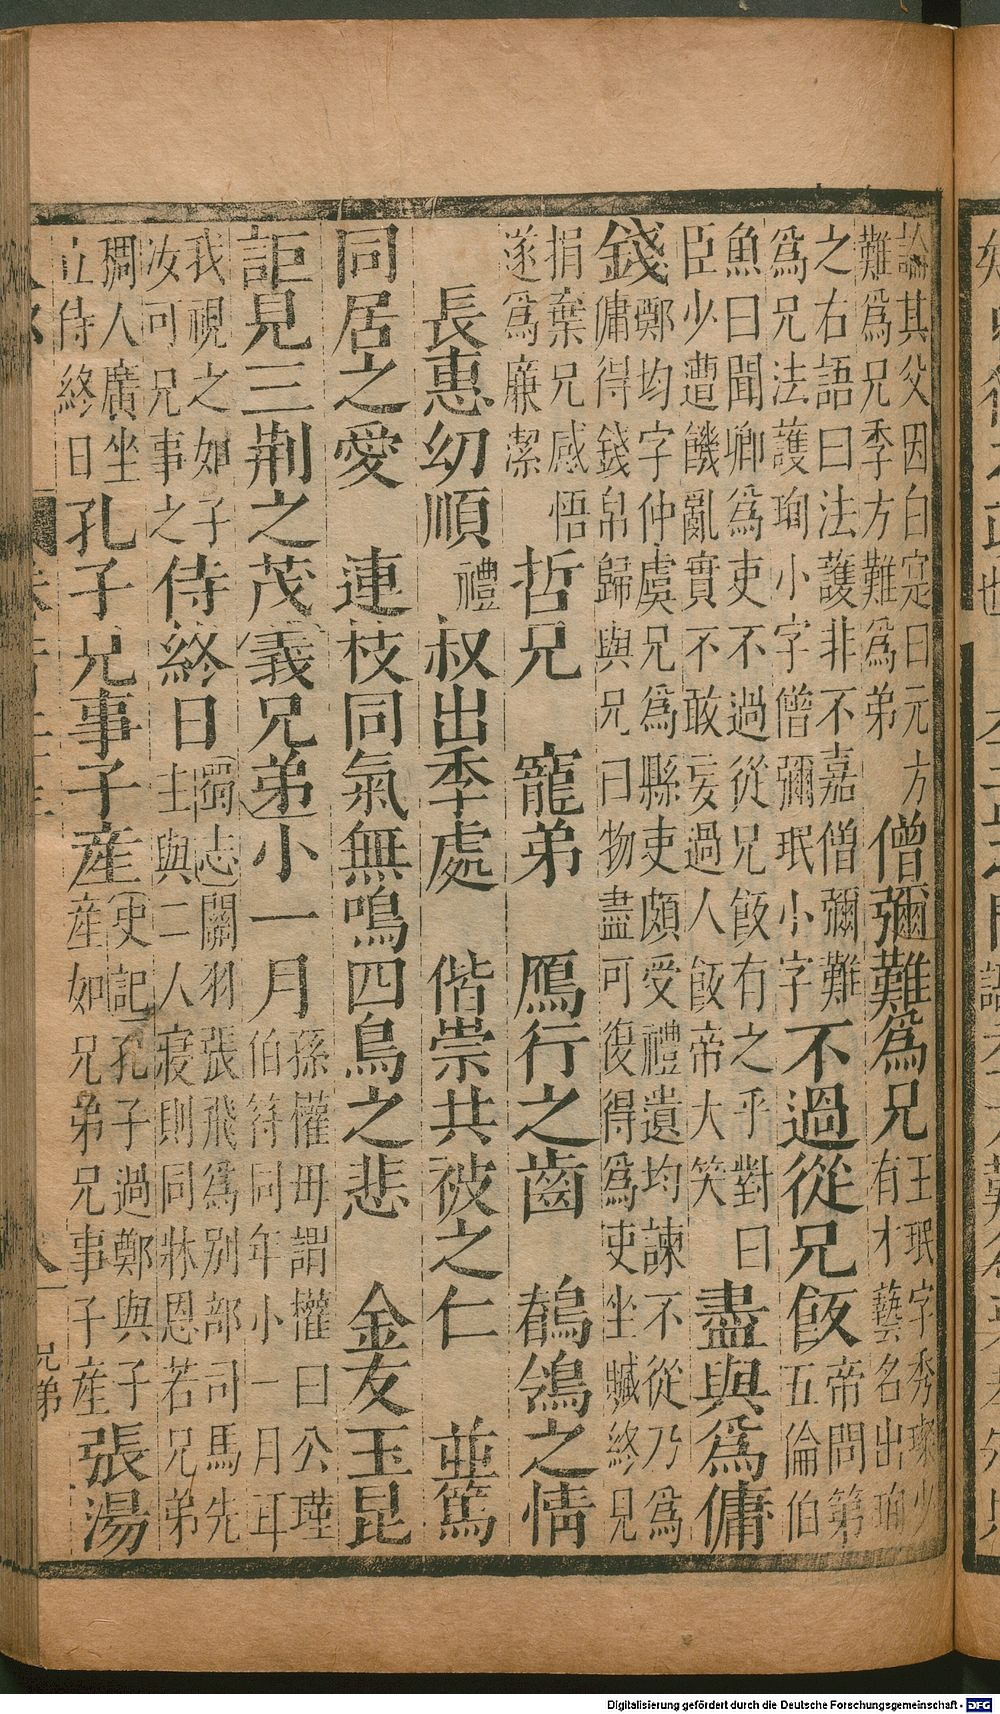 論其父因白寔曰元方
難爲兄季方難爲弟
僧彌難爲兄
王珉字秀琰少
有才藝名出珣
之右語曰法護非不嘉僧彌難
爲兄法護珣小字僧彌珉小字
不過從兄飯
帝問第
五倫伯
魚曰聞卿爲吏不過從兄飯有之乎對曰
臣少遭饑亂實不敢妄過人飯帝大笑
盡與爲傭
錢
鄭均字仲虞兄爲縣吏頗受禮遺均諫不從乃爲
傭得錢帛歸與兄曰物盡可復得爲吏坐贓終見
捐棄兄感悟
遂爲廉潔
哲兄 寵弟 鴈行之齒 鶺鴒之情
長惠幼順 禮 叔出季處 偕崇共被之仁 並篤
同居之愛 連枝同氣無鳴四鳥之悲 金友玉昆
詎見三荆之茂 義兄弟 小一月
孫權母謂權曰公瑾
伯符同年小一月耳
我視之如子
汝可兄事之
侍終日
蜀志關羽張飛爲別部司馬先
主與二人寢則同牀恩若兄弟
稠人廣坐
立侍終日
孔子兄事子産
史記孔子過鄭與子
産如兄弟兄事子産
張湯
兄弟
Digitalisierung gefördert durch die Deutsche Forschungsgemeinschaft - DFG